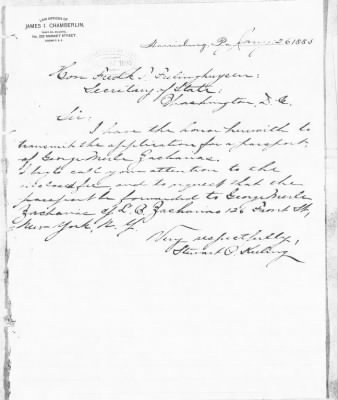 LAW OFFICES OF
JAMES I. CHAMBERLIN,
MARKET STREET,
Harrisburg, Pa. 26 1885
Hon Fredk T. Frelinghuysen:
Secretary of State:
Washington, D. C.
Sir:
I have the honor herewith to
transmit the application for a passport
of George Merle Zacharias.
I beg call your attention to the
enclosed fee, and to request that the
passport be forwarded to George Merle
Zacharias % L. B. Zacharias 126 Front St,
New York, N. Y.
Very respectfully,
Stewart O. Keeling